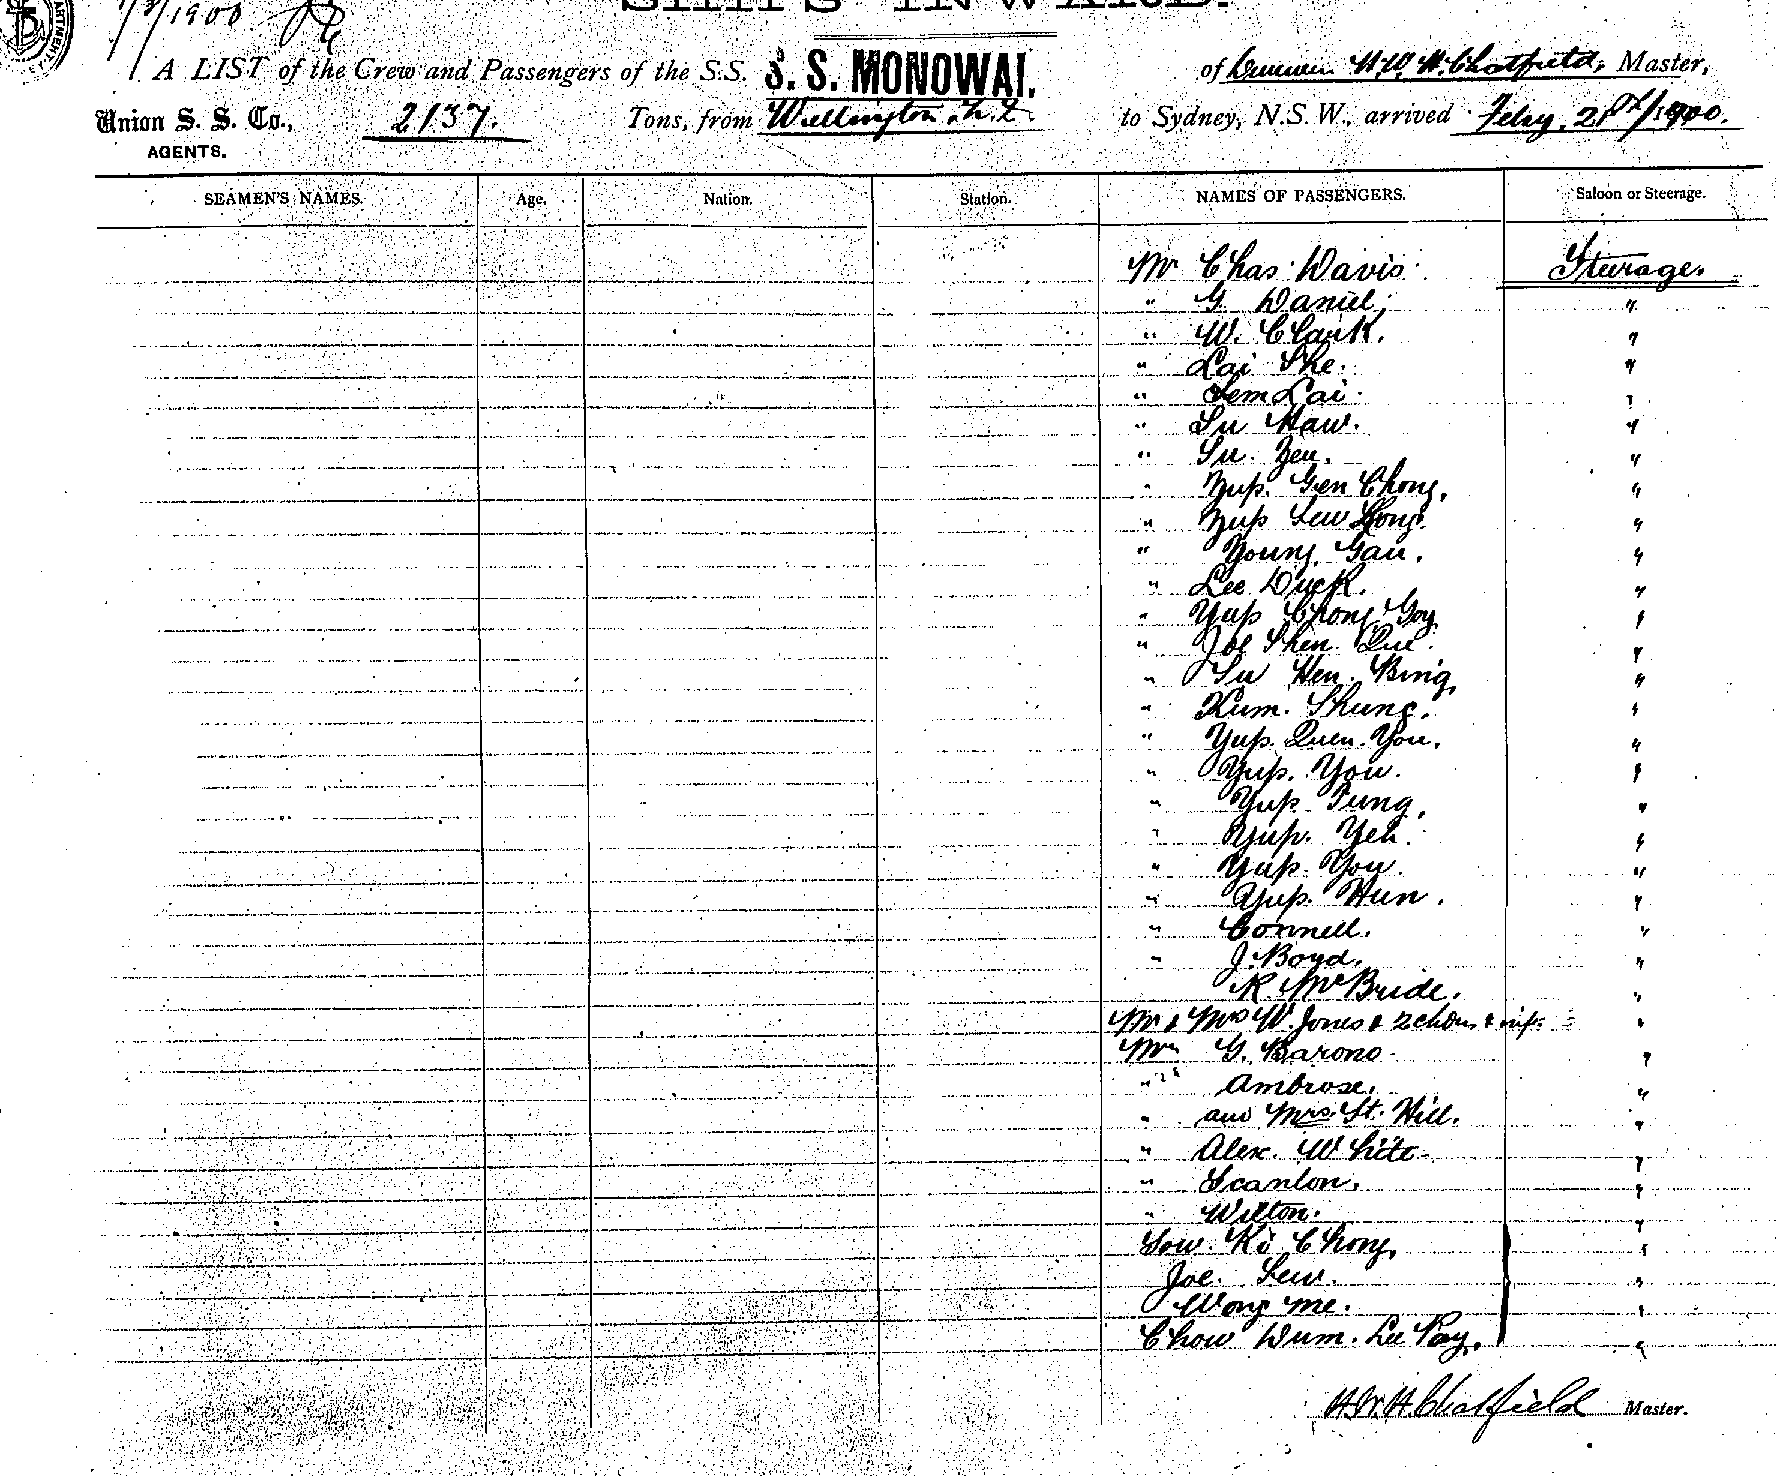 1/3/1900
SHIPS INWARD.
A LIST of the Crew and Passengers of the S.S. S. S. MONOWAI. of Dunedin H. W. H. Chatfield, Master,
Union S. S. Co., 2137. Tons, from Wellington N.Z. to Sydney, N.S.W., arrived Feby. 21st/1900.
AGENTS.
SEAMEN'S NAMES. Age. Nation. Station. NAMES OF PASSENGERS. Saloon or Steerage.
Mr Chas. Davis. Steerage.
" G. Daniel, "
" W. Clark. "
" Lai She. "
" Sem Lai. "
" Su Haw. "
" Su. Yeu. "
" Yup. Gen Chong. "
" Yup Sew Hong. "
" Young Gau. "
" Lee Duck. "
" Yup Chong Goy "
" Joe Shen. Que. "
" Su Hen. Bing, "
" Kum. Shung. "
" Yup. Quen. You. "
" Yup. You. "
" Yup Fung, "
" Yup. Yeh. "
" Yup. You. "
" Yup. Hun. "
" Connell. "
" J. Boyd. "
R. McBride. "
Mr & Mrs W. Jones & 2 chdn & inf. "
Mr G. Barono. "
" Ambrose. "
" and Mrs St. Hill. "
" Alex. White. "
" Scanlon. "
" Wilton. "
Sow. Ki Chong, "
Joe. Sew. "
Wong me. "
Chow Wum. Lee Pay. "
H.W.H. Chatfield Master.